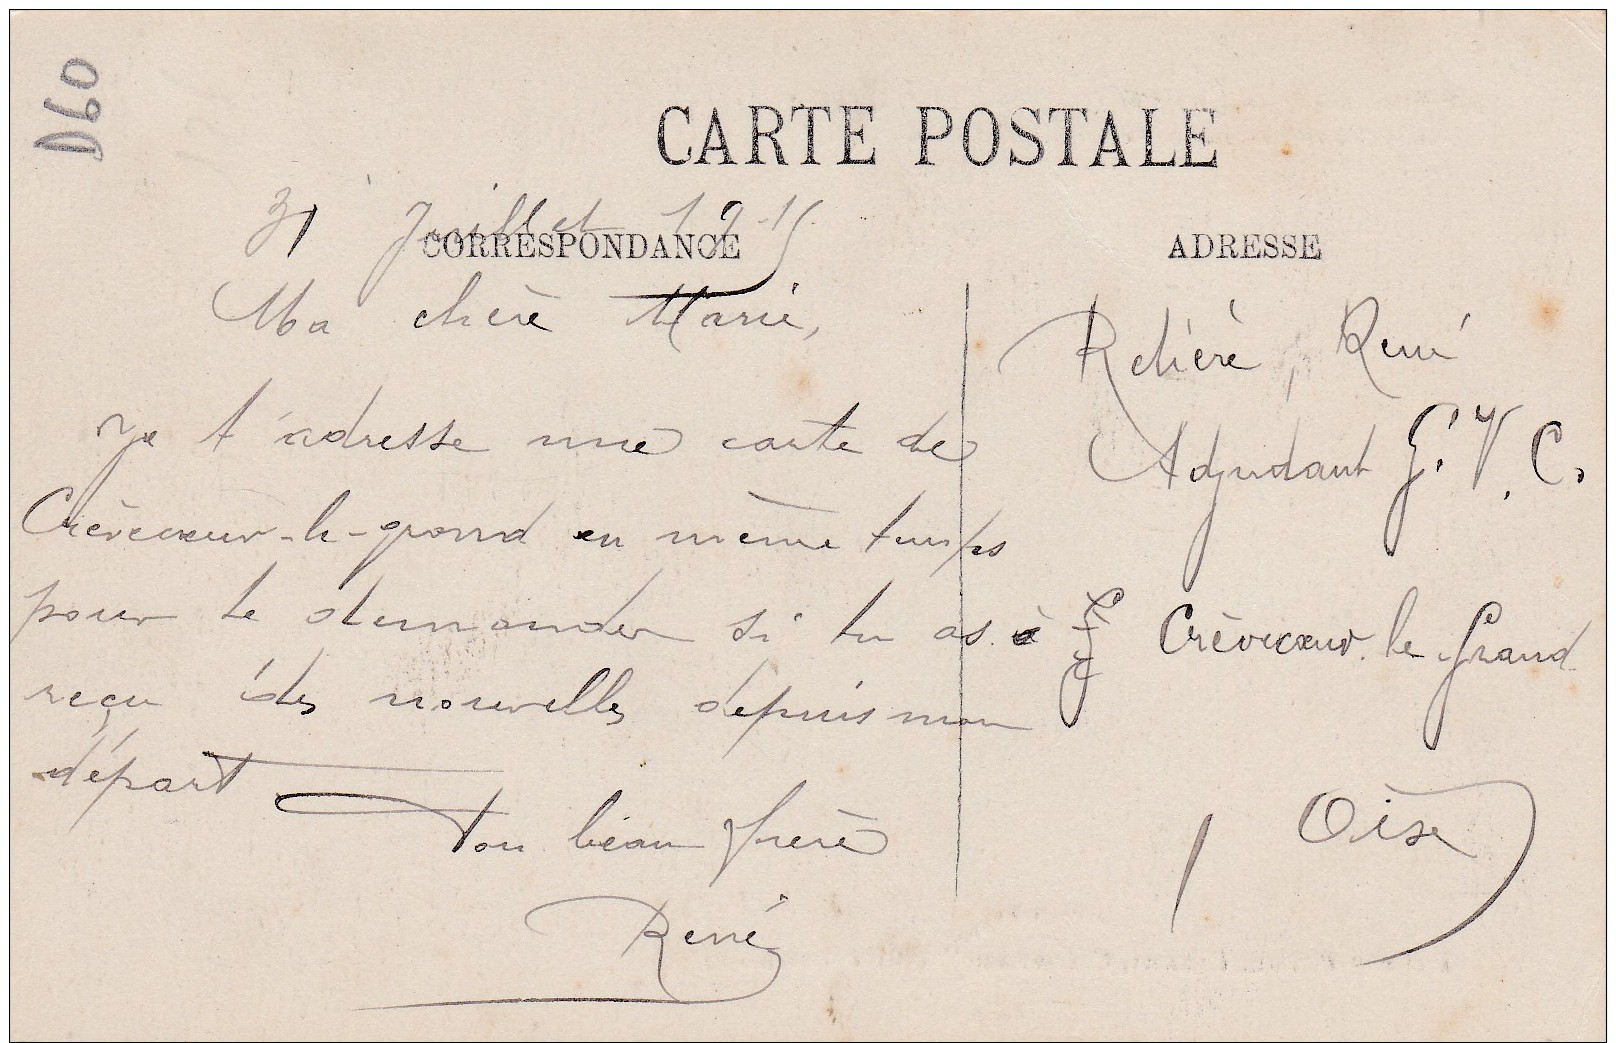 D60
CARTE POSTALE
31 Juillet 1915
CORRESPONDANCE
Ma chère Marie,
Je t'adresse une carte de
Crèvecœur-le-grand en même temps
pour te demander si tu as
reçu des nouvelles depuis mon
départ
Ton beau frère
René
ADRESSE
René
Adjudant G.V.C.
Crèvecœur-le-Grand
Oise